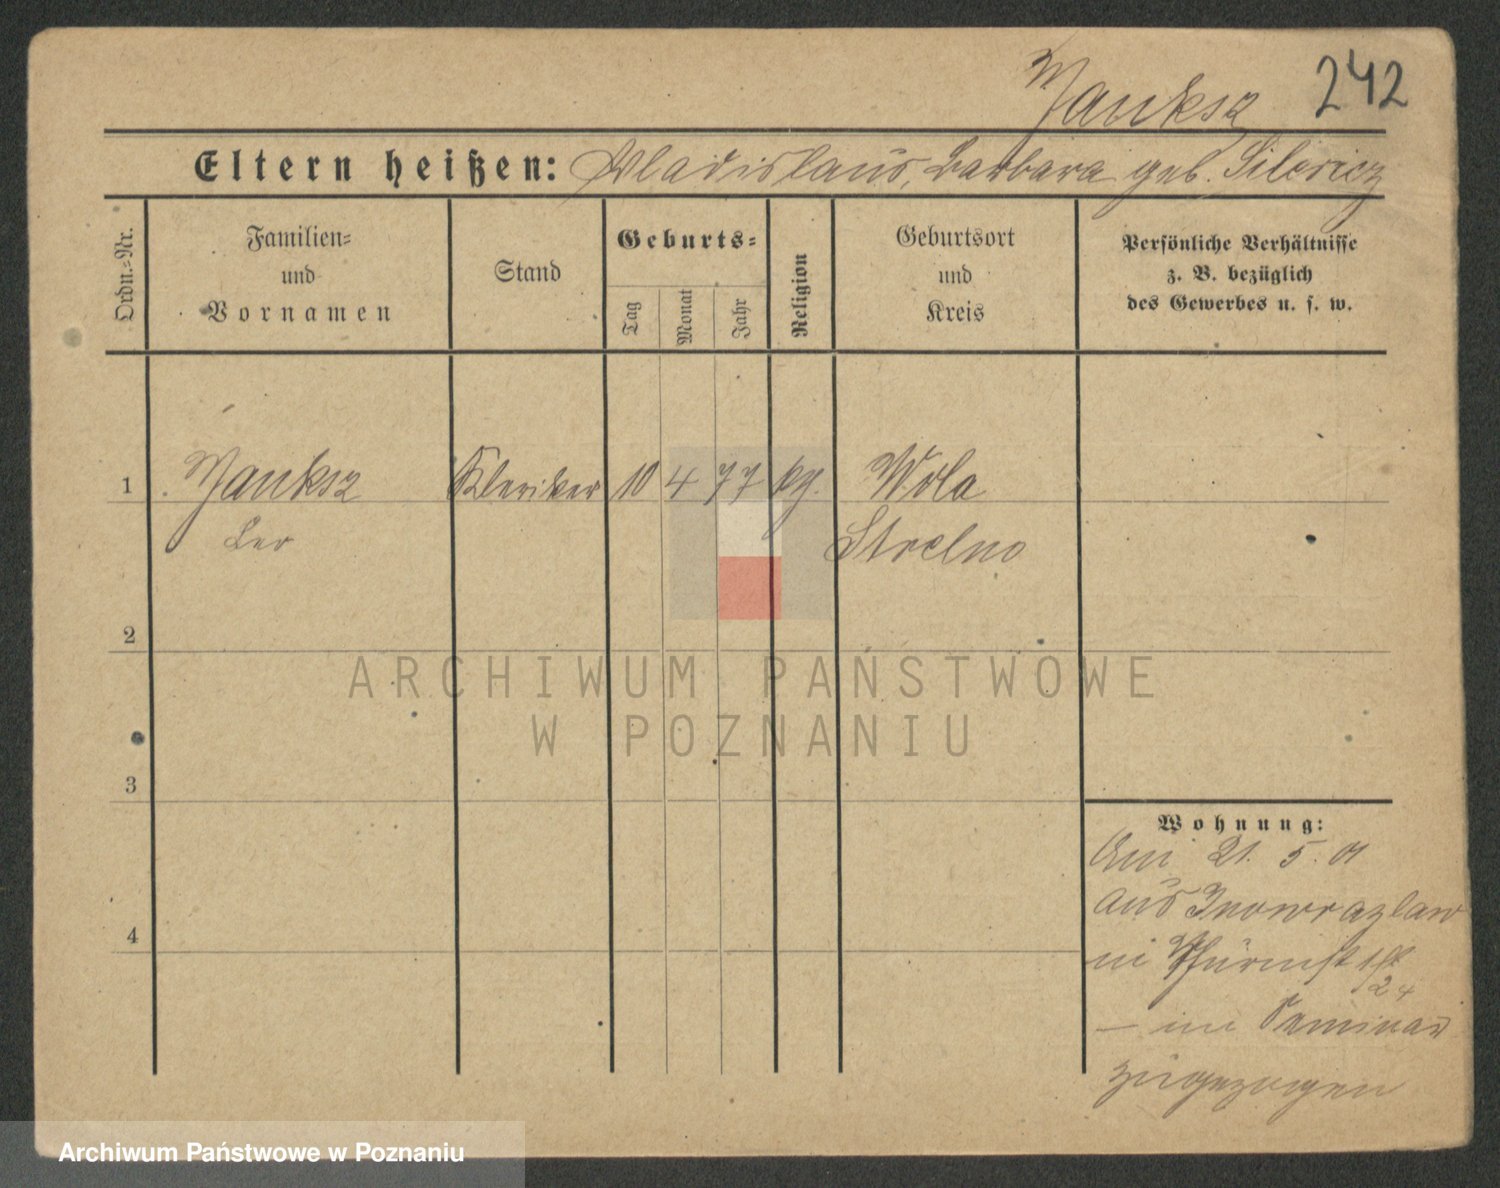 Manksz 242
Eltern heißen: Wladislaus, Barbara geb.
Ordn.=Nr.
Familien=
und
Vornamen
Stand
Geburts=
Tag
Monat
Jahr
Religion
Geburtsort
und
Kreis
Persönliche Verhältnisse
z. B. bezüglich
des Gewerbes u. s. w.
1 Manksz Kleriker 10 4 77 kg. Wola
Leo Strelno
2
3
4
Wohnung:
Am 21. 5. 01
aus Inowrazlaw
im Seminar
zugezogen
ARCHIWUM PAŃSTWOWE
W POZNANIU
Archiwum Państwowe w Poznaniu